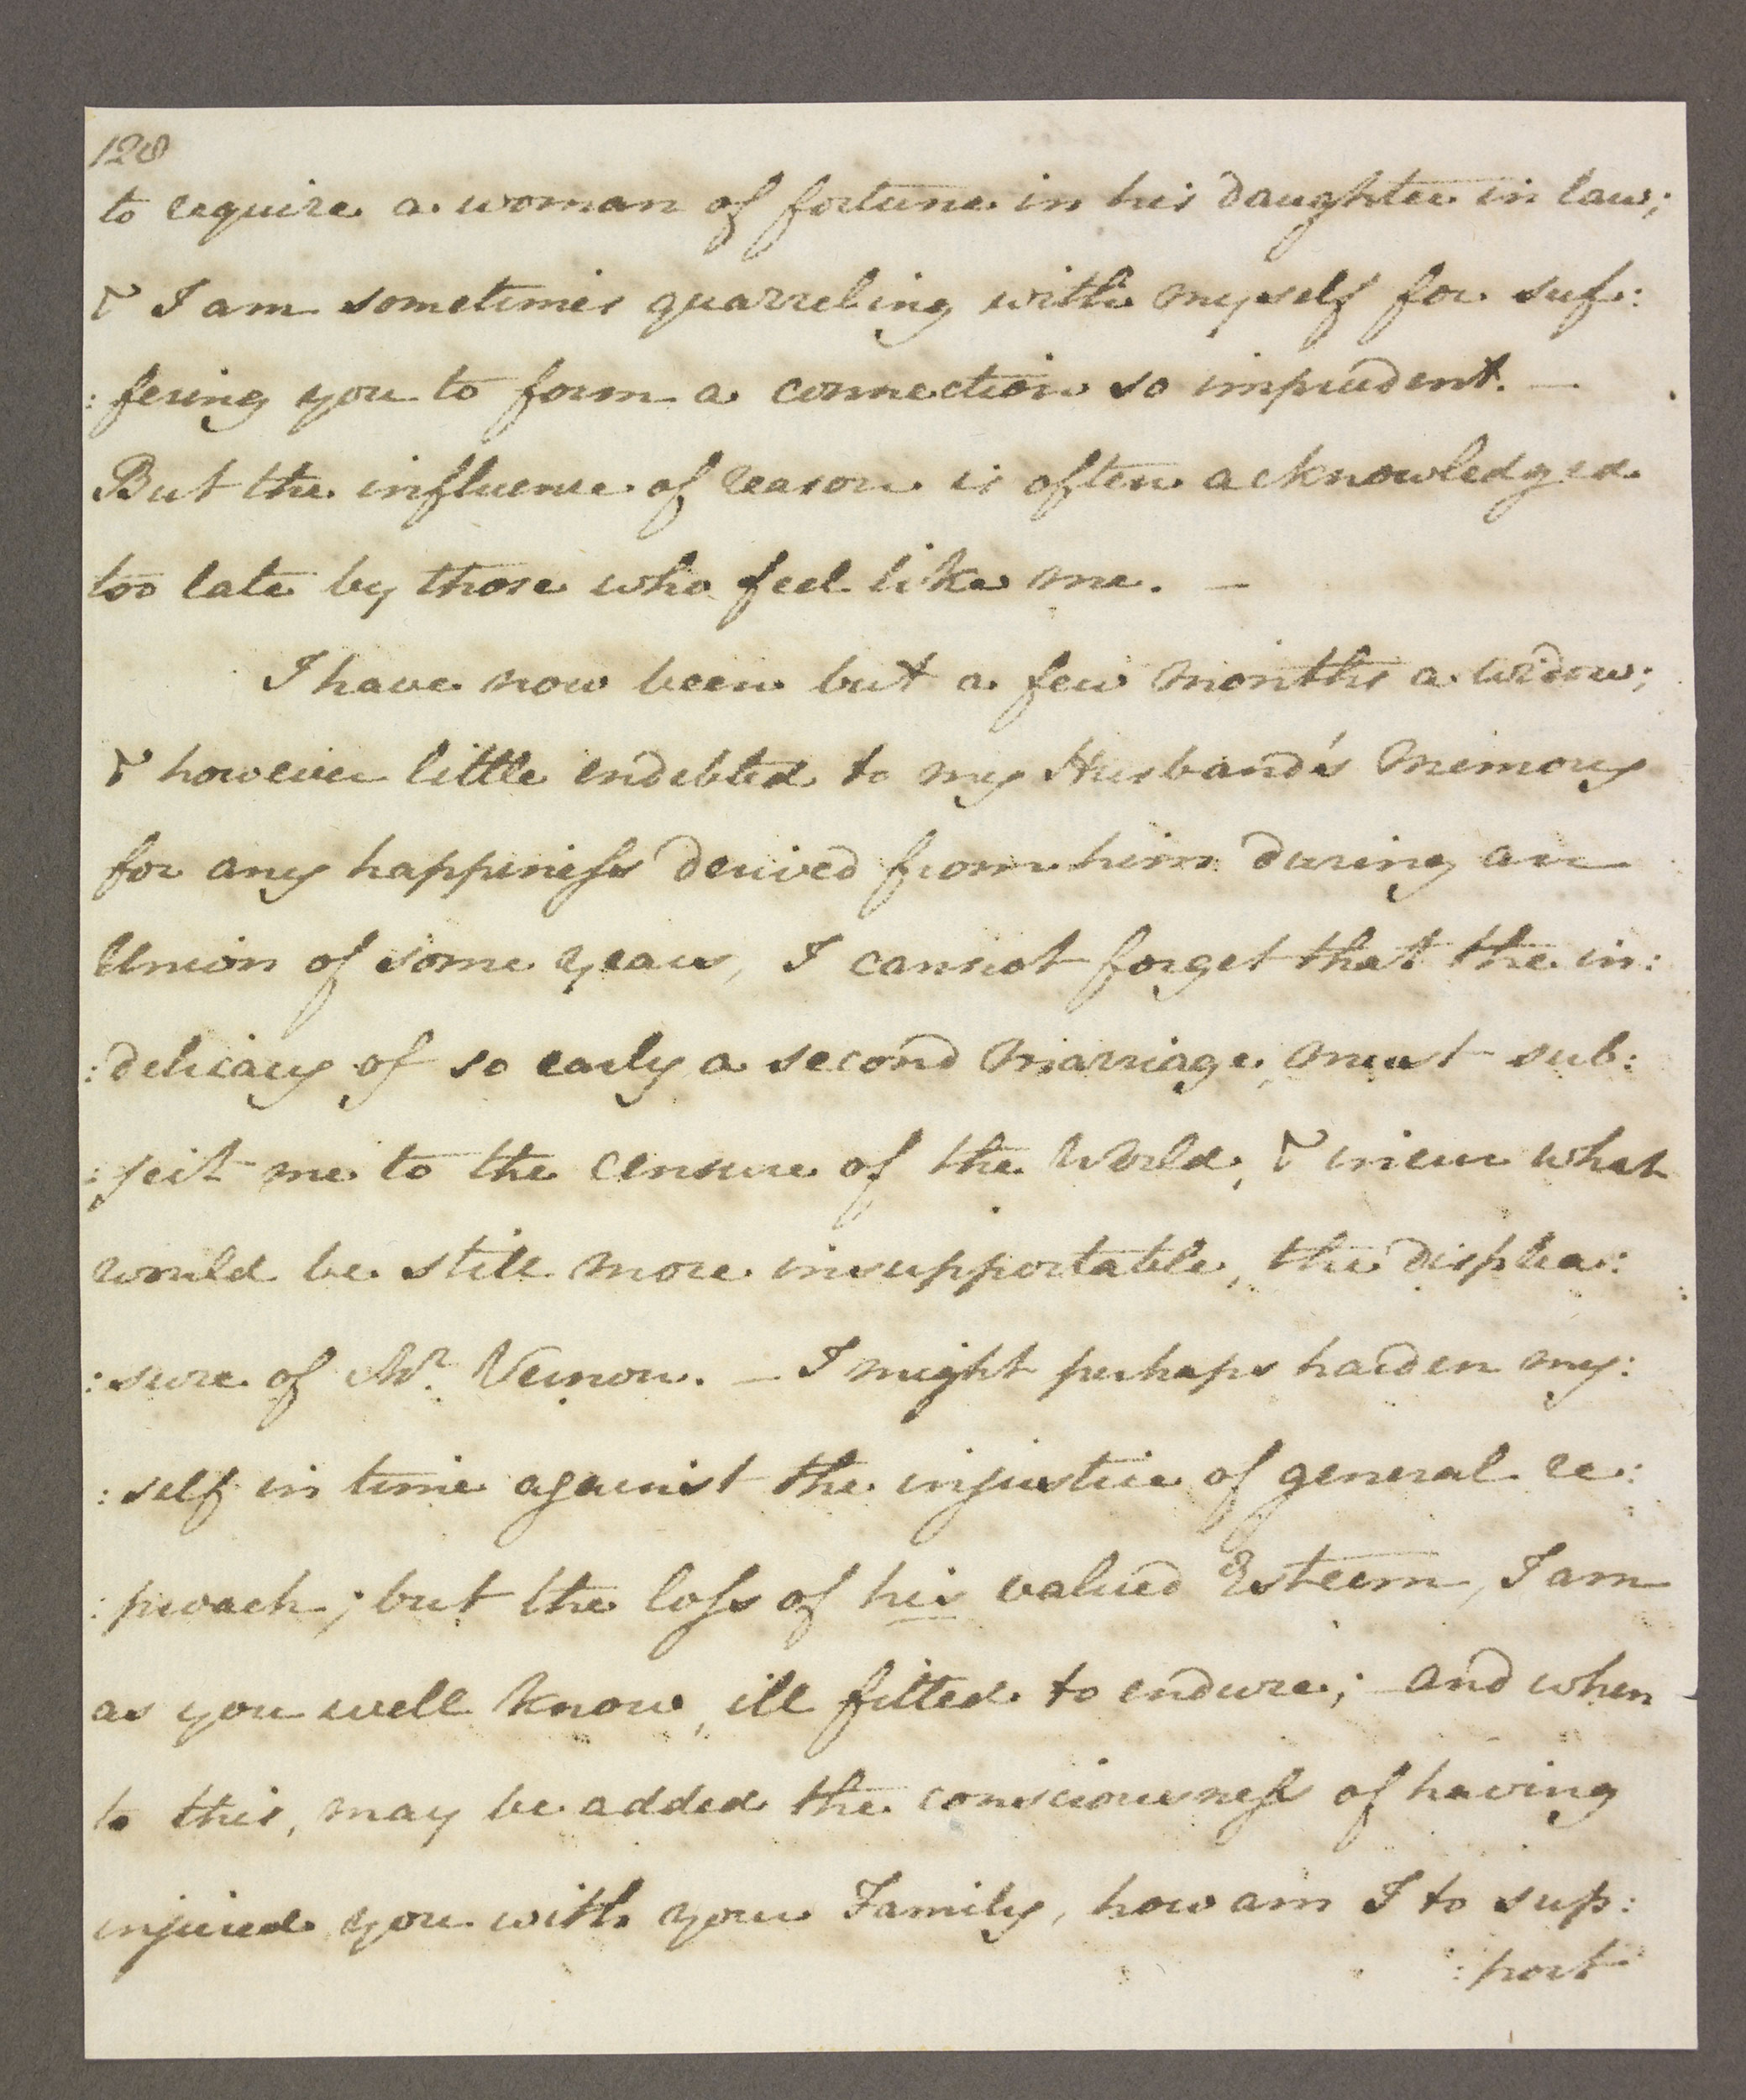 120
to require a woman of fortune in his daughter in law;
& I am sometimes quarreling with myself for suf:
:fering you to form a connection so imprudent. —
But the influence of reason is often acknowledged
too late by those who feel like me. —
I have now been but a few months a widow;
& however little endebted to my Husband's memory
for any happiness derived from him during an
Union of some years, I cannot forget that the in:
:delicacy of so early a second marriage, must sub:
:ject me to the censure of the World, & incur what
would be still more insupportable, the displea:
:sure of Mr. Vernon. — I might perhaps harden my:
:self in time against the injustice of general re:
:proach; but the loss of his valued Esteem, I am
as you well know, ill fitted to endure; and when
to this, may be added the consciousness of having
injured you with your Family, how am I to sup:
:port